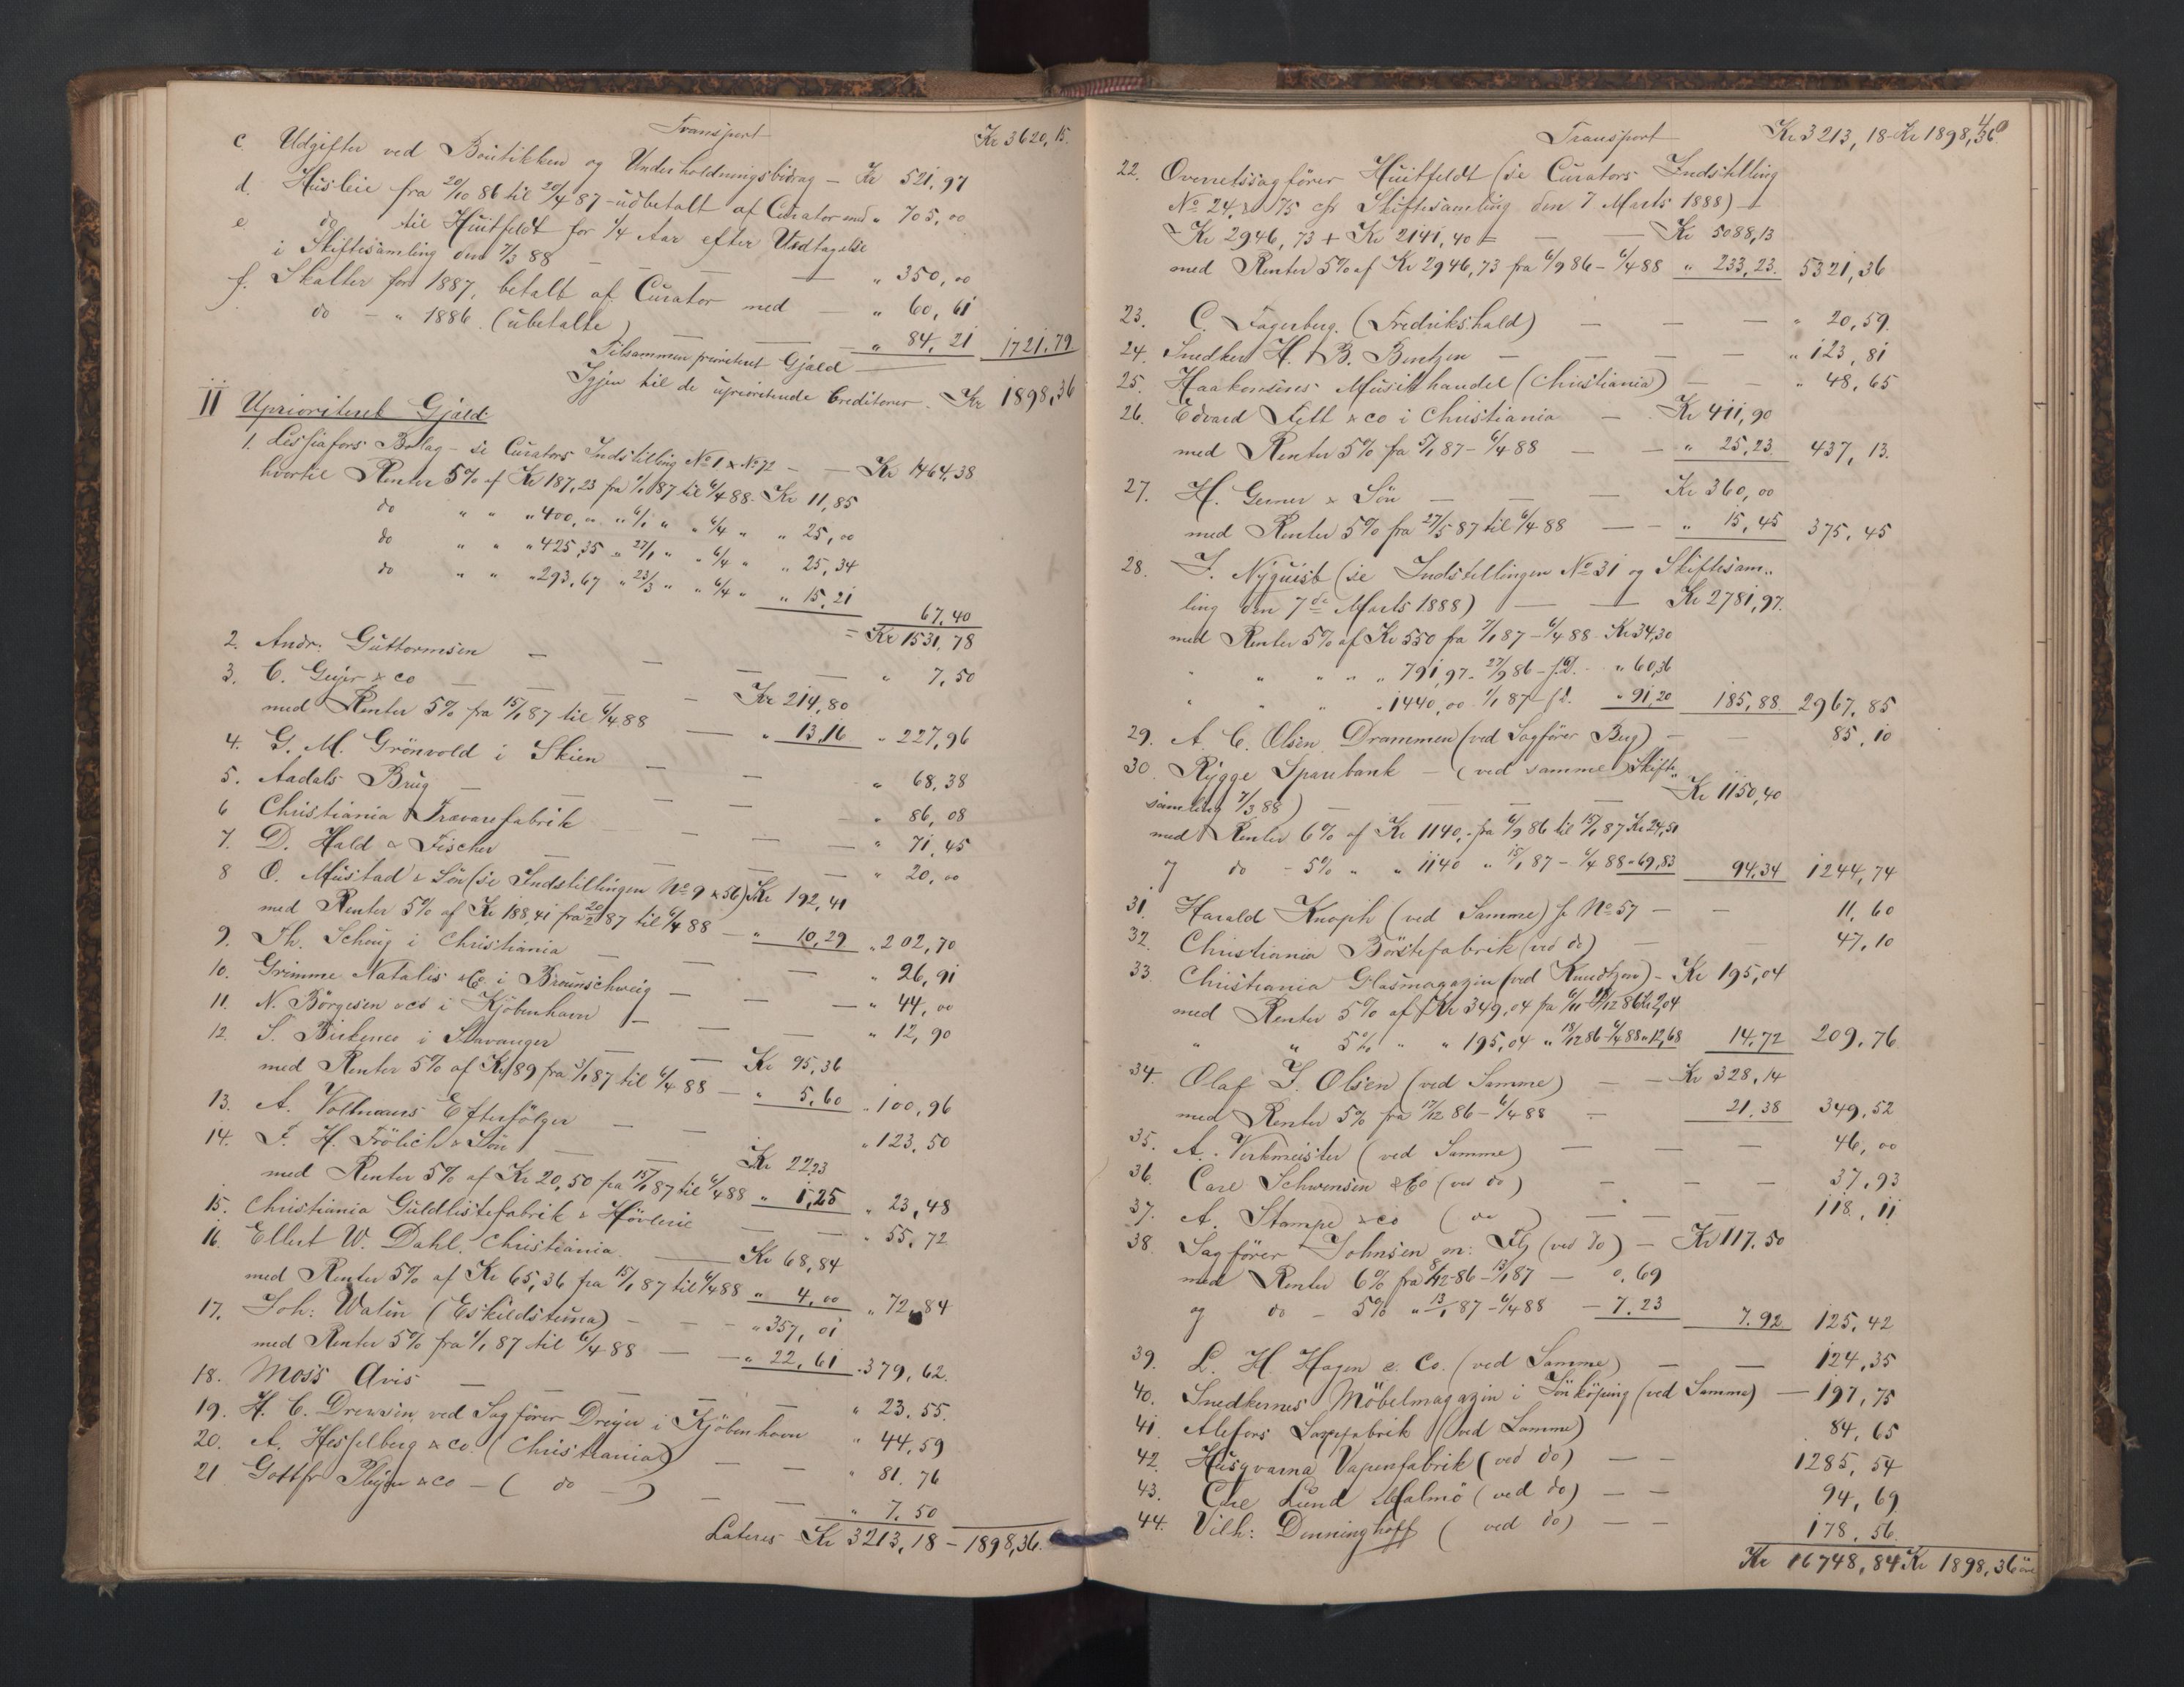 Transport Kr 3620,15.
c. Udgifter ved Boutikken og Underholdningsbidrag – Kr 521,97
d. Husleie fra 20/10 86 til 20/4 87 – udbetalt af Curator med " 705,00
e do til Huitfeldt for 1/4 Aar efter Vedtagelse
i Skiftesamling den 7/3 88 — — — " 350,00
f. Skatter for 1887, betalt af Curator med — " 60,61
do – " 1886 (ubetalte) — — " 84,21 1721,79
Tilsammen prioriteret Gjæld —
Igjen til de uprioriterede Creditorer – Kr 1898,36
II Uprioriteret Gjæld:
1. Lesjöfors Bolag – se Curators Indstilling No 1 & No 72 – – Kr 1464,38
hvortil Renter 5% af Kr 187,23 fra 1/1 87 til 6/4 88 Kr 11,85
do " " " 400, " " 6/1 " " 6/4 " " 25,00
do " " " 425,35 " 27/1 " " 6/4 " " 25,34
do " " " 293,67 " 23/3 " " 6/4 " " 15,21
67,40
= Kr 1531,78
2. Andr. Guttormsen — — — — " 7,50
3. C. Geijer & co — — — – Kr 214,80
med Renter 5% fra 15/1 87 til 6/4 88 — " 13,16 " 227,96
4. G. M. Grönvold i Skien — — " 68,38
5. Aadals Brug — — — " 86,08
6 Christiania Trævarefabrik — — — " 71,45
7. D. Hald & Fischer — — — " 20,00
8 O. Mustad & Sön (se Indstillingen No 9 & 56) Kr 192,41
med Renter 5% af Kr 188,41 fra 20/2 87 til 6/4 88 – " 10,29 " 202,70
9. Th. Scheug i Christiania — — — " 26,91
10. Grimme Natalis & Co i Braunschweig — — — " 44,00
11. N. Börgesen & co i Kjöbenhavn — — — " 12,90
12. S. Birkenes i Stavanger — — Kr 95,36
med Renter 5% af Kr 89 fra 3/1 87 til 6/4 88 — " 5,60 " 100,96
13. A. Voltmans Efterfölger — — " 123,50
14. F. H. Frölich & Sön — — Kr 22,23
med Renter 5% af Kr 20,50 fra 15/1 87 til 6/4 88 " 1,25 " 23,48
15. Christiania Guldlistefabrik & Hövleri — — " 55,72
16. Ellert W. Dahl, Christiania. — Kr 68,84
med Renter 5% af Kr 65,36 fra 15/1 87 til 6/4 88 " 4,00 " 72,84
17. Joh: Walin (Eskildstuna) – – – " 357,01
med Renter 5% fra 1/1 87 til 6/4 88 — — " 22,61 " 379,62.
18. Moss Avis — — — — — " 23.55.
19. H. C. Drewsen ved Sagförer Dreyer i Kjöbenhavn " 44,59
20. A. Hesselberg & co. (Christiania) — — " 81.76
21 Gottfr. & co – ( do – ) — — " 7.50
Lateres – Kr 3213,18 – 1898,36.
Transport Kr 3213,18 Kr 1898,36
22. Overretssagförer Huitfeldt (se Curators Indstilling
No 24 & 75 cfr Skiftesamling den 7 Marts 1888) –
– Kr 2946,73 + Kr 2141,40 = — — Kr 5088,13
med Renter 5% af Kr 2946,73 fra 6/9 86 – 6/4 88 " 233,23. 5321,36
23. C. Fagerberg. (Fredrikshald) — — — " 20,59.
24. Snedker H. B. Bentzen — — — — " 123,81
25. Haakonsens Musikhandel (Christiania) — — " 48,65
26. Edvard Fett & co i Christiania — Kr 411,90
med Renter 5% fra 5/1 87 – 6/4 88 — — " 25,23. 437,13.
27. H. Gerner & Sön — — — Kr 360,00
med Renter 5% fra 27/5 87 til 6/4 88 — – " 15,45 375,45
28. J. Nyquist (se Indstillingen No 31 og Skiftesam„
ling den 7de Marts 1888) — — Kr 2781,97.
med Renter 5% af Kr 550 fra 7/1 87 – 6/4 88 – Kr 34,30
" " " " " 791,97 – 27/9 86 – s.D. – " 60,36
" " " " 1440,00 – 1/1 87 – s.D. " 91,20 185,88 2967,85
29. A. C. Olsen Drammen (ved Sagförer Berg) – — 85,10
30. Rygge Sparebank – (ved samme) Skifte„
samling 7/3 88) — — — Kr 1150,40
med Renter 6% af Kr 1140,- fra 6/9 86 til 15/1 87 Kr 24,51
og do – 5% " " 1140 " 15/1 87 – 6/4 88 " 69,83 94,34 1244,74
31. Harald Knoph (ved Samme) se No 57 – — 11,60
32. Christiania Börstefabrik (ved do) — — 47,10
33. Christiania Glasmagazin (ved Knudtzon) – Kr 195,04
med Renter 5% af Kr 349,04 fra 6/11 – 18/12 86 Kr 2,04
" " 5% " " 195,04 " 18/12 86 – 6/4 88 " 12,68 14,72 209,76
34. Olaf J. Olsen (ved Samme) — – Kr 328,14
med Renter 5% fra 17/12 86 – 6/4 88 — 21,38 349,52
35. A. Verkmeister (ved Samme) — — — 46,00
36. Carl Schwensen & Co (ved do) — — — 37,93
37. A. Stampe & co ( do ) — — — 118,11
38. Sagförer Johnsen m: Fl (ved do) – Kr 117.50
med Renter 6% fra 8/12 86 – 13/1 87 — 0,69
og do – 5% " 13/1 87 – 6/4 88 – 7.23 7.92 125,42
39. L. H. Hagen & Co. (ved Samme) — — 124,35
40. Snedkernes Möbelmagazin i Jönköping (ved Samme) – 197,75
41. Alefors fabrik (ved Samme) 84,65
42. Husqvarna Vapenfabrik (ved do) — – 1285,54
43. Carl Lund Malmö (ved do) — – 94,69
44. Vilh: Denninghoff ( ved do) — – 178.56.
Kr 16748,84 Kr 1898,36 öre